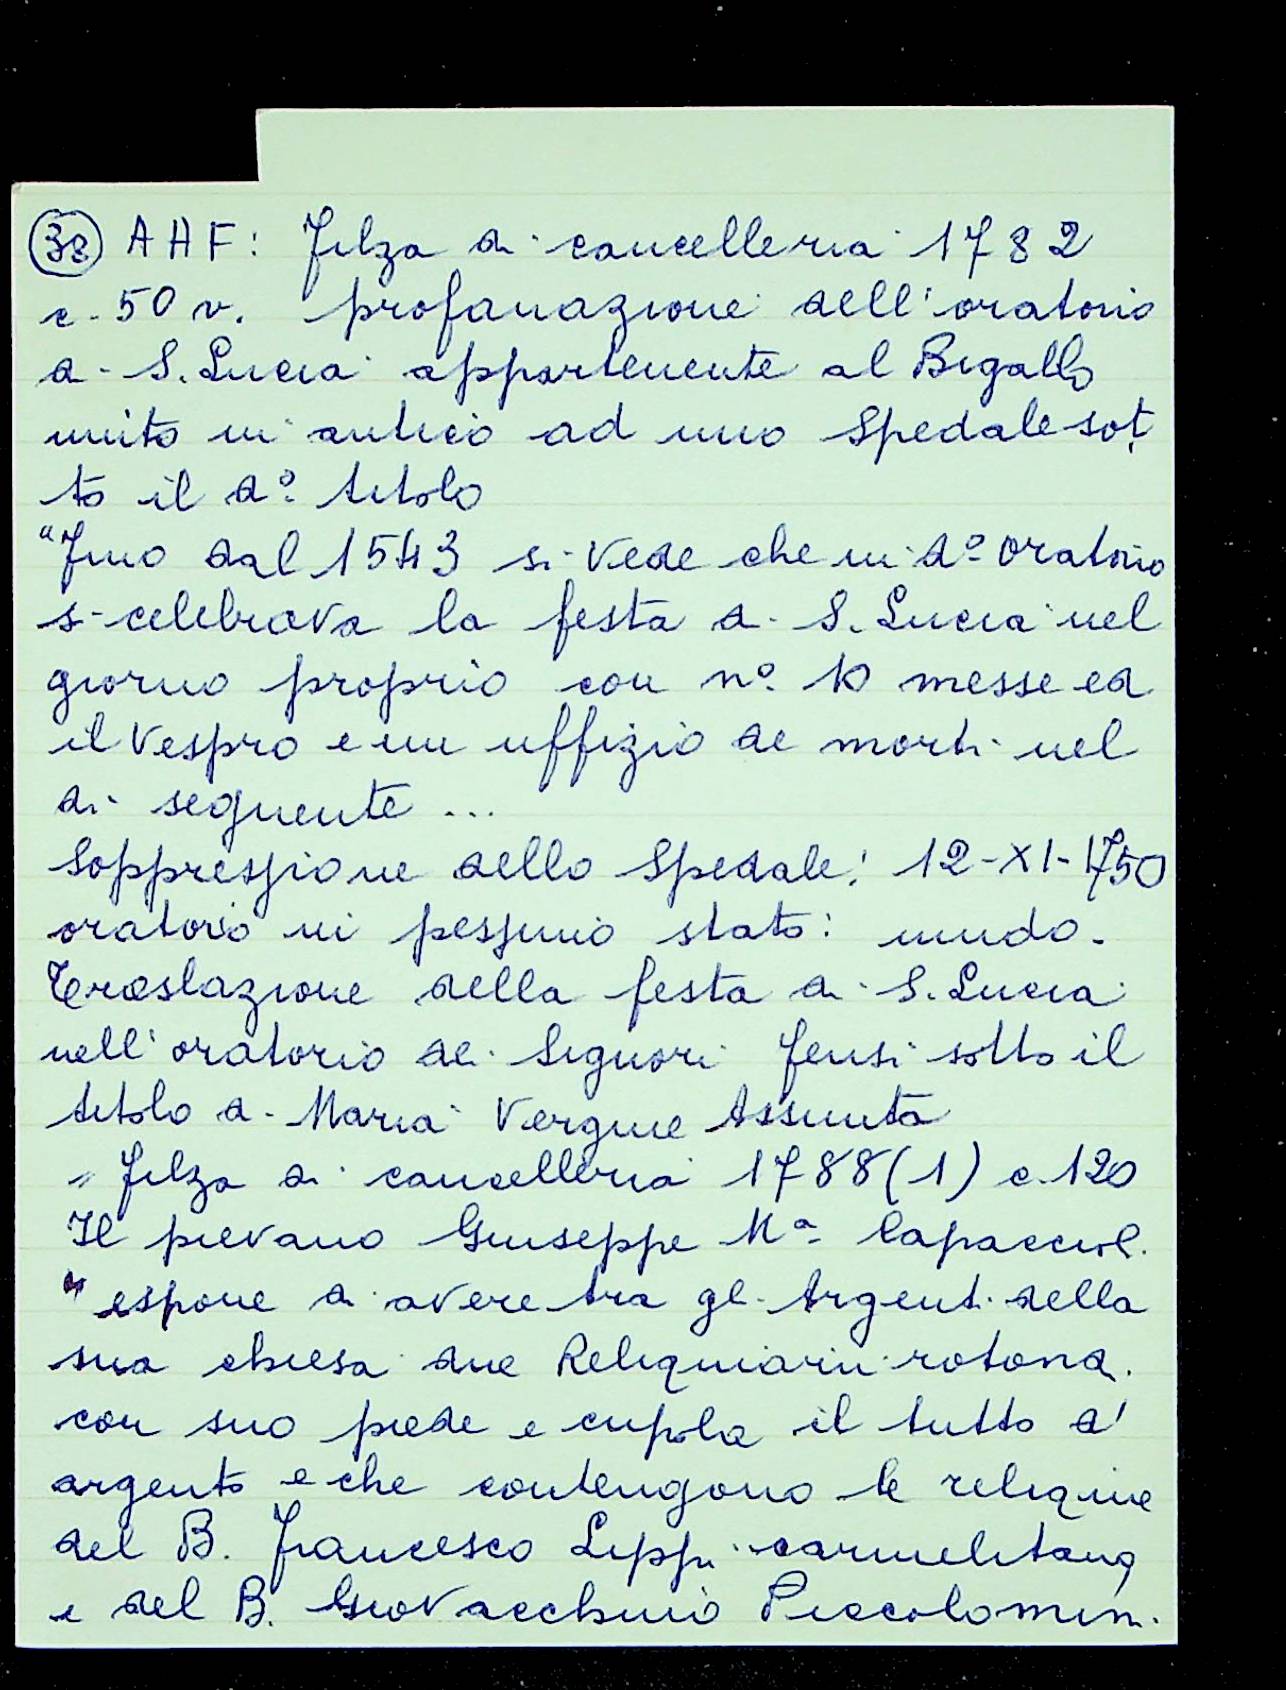 (38) AHF: Filza di cancelleria 1782
c. 50 v. profanazione dell'oratorio
di S. Lucia appartenente al Bigallo
unito in antico ad uno Spedale sot
to il d.º titolo
"Fino dal 1543 si vede che in d.º oratorio
si celebrava la festa di S. Lucia nel
giorno proprio con n.º 10 messe ed
il Vespro e un uffizio de morti nel
dì seguente ...
Soppressione dello Spedale: 12-XI-1750
oratorio in pessimo stato: umido.
Traslazione della festa di S. Lucia
nell'oratorio dei Signori Fensi sotto il
titolo di Maria Vergine Assunta
" Filza di cancelleria 1788 (1) c. 120
Il pievano Giuseppe Mª Capaccioli
" espone di avere tra gli Argenti della
sua chiesa due Reliquiarii rotondi
con suo piede e cupola il tutto d'
argento e che contengono le reliquie
del B. Francesco Lippi carmelitano
e del B. Giovacchino Piccolomini